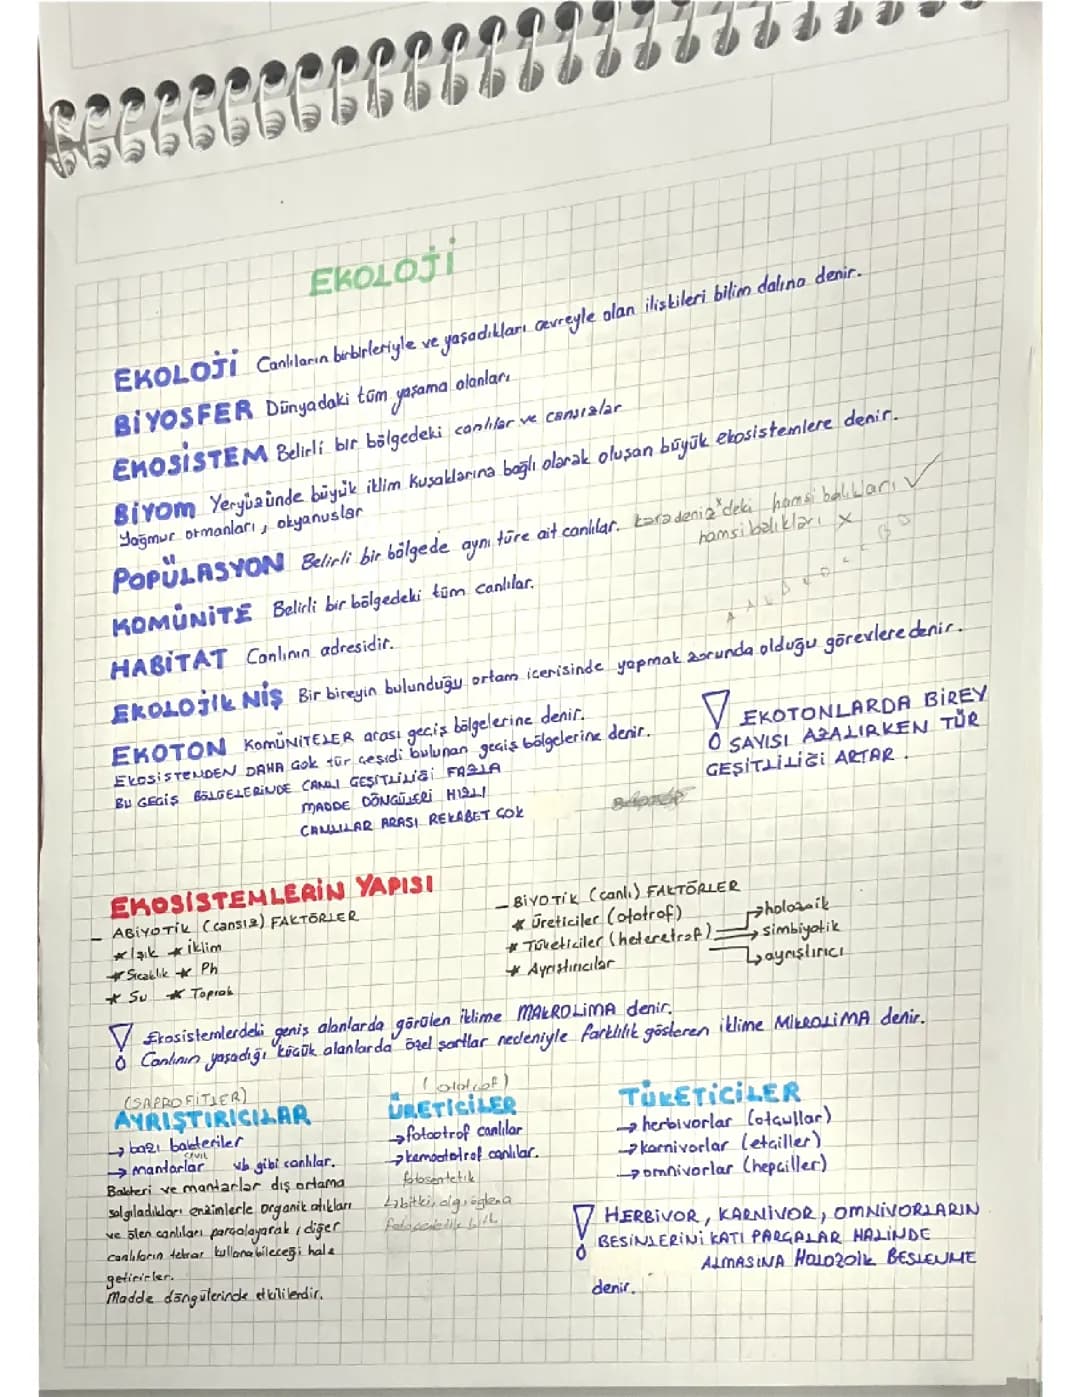 EKOLOJİ
EKOLOJİ Canlıların birbirleriyle ve yaşadıkları çevreyle olan ilişkileri bilim dalına denir.
BİYOSFER Dünyadaki tüm yaşama olanları
EKOSİSTEM Belirli bir bölgedeki canlılar ve cansızlar
BİYOM Yeryüzünde büyük iklim kuşaklarına bağlı olarak oluşan büyük ekosistemlere denir.
Yağmur ormanları, okyanuslar
POPÜLASYON Belirli bir bölgede aynı türe ait canlılar. karadeniz'deki hamsi balıkları ✓
hamsi balıkları x
KOMÜNİTE Belirli bir bölgedeki tüm canlılar.
HABİTAT Canlının adresidir.
EKOLOJİK NİŞ Bir bireyin bulunduğu ortam içerisinde yapmak zorunda olduğu görevlere denir.
EKOTON KOMÜNİTELER arası geçiş bölgelerine denir.
EKOSİSTENDEN DAHA çok tür çeşidi bulunan geçiş bölgelerine denir.
BU GEÇİŞ BÖLGELERİNDE CANLI ÇEŞİTLİLİĞİ FAZLA
MADDE DÖNGÜLERİ HIZLI
CANLILAR ARASI REKABET ÇOK
EKOTONLARDA BİREY
SAYISI AZALIRKEN TÜR
ÇEŞİTLİLİĞİ ARTAR.
EKOSİSTEMLERİN YAPISI
- ABİYOTİK (cansız) FAKTÖRLER
* Işık * İklim
* Sıcaklık * Ph
* Su * Toprak
- BİYOTİK (canlı) FAKTÖRLER
* Üreticiler (ototrof)
* Tüketiciler (heteretrof) → holozoik
→ simbiyotik
→ ayrıştırıcı
* Ayrıştırıcılar
! Ekosistemlerdeki geniş alanlarda görülen iklime MAKROLİMA denir.
Canlının yaşadığı küçük alanlarda özel şartlar nedeniyle farklılık gösteren iklime MİKROLİMA denir.
(SAPROFİTLER)
AYRIŞTIRICILAR
→ bazı bakteriler
→ mantarlar vb gibi canlılar.
Bakteri ve mantarlar dış ortama
salgıladıkları enzimlerle organik atıkları
ve ölen canlıları parçalayarak, diğer
canlıların tekrar kullanabileceği hale
getirirler.
Madde döngülerinde etkilidir.
(ototrof)
ÜRETİCİLER
→ fotootrof canlılar
→ kemoototrof canlılar.
fotosentetik
bitki, alg, öglena
TÜKETİCİLER
→ herbivorlar (otçullar)
→ karnivorlar (etçiller)
→ omnivorlar (hepçiller)
! HERBİVOR, KARNİVOR, OMNİVORLARIN
BESİNLERİNİ KATI PARÇALAR HALİNDE
ALMASINA HOLOZOİK BESLENME
denir.